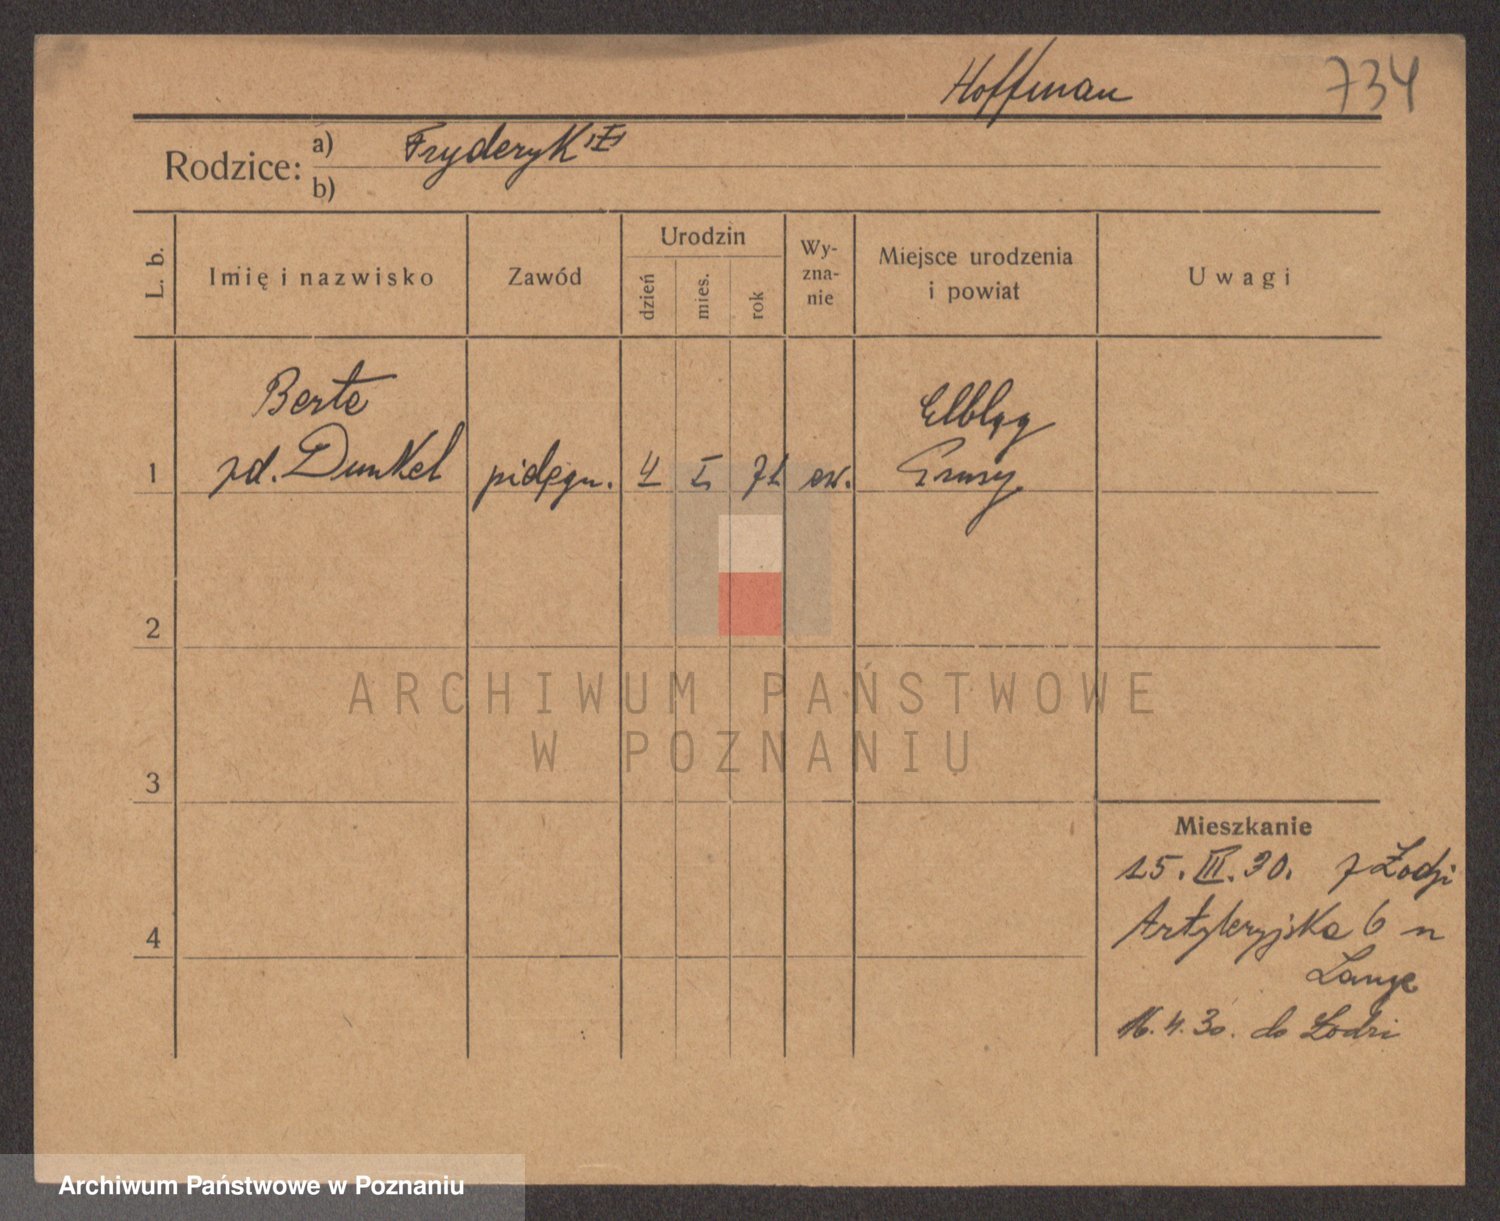 Hoffman 734
Rodzice: a) Fryderyk
b)
L. b. Imię i nazwisko Zawód Urodzin dzień mies. rok Wy-zna-nie Miejsce urodzenia i powiat Uwagi
Berta
1 zd. Dunkel pielęgn. 4 I 71 ew. Elbląg
Prusy
2
ARCHIWUM PAŃSTWOWE
W POZNANIU
3
Mieszkanie
15. III. 30. z Łodzi
4 Artyleryjska 6 n
Lange
16. 4. 30. do Łodzi
Archiwum Państwowe w Poznaniu